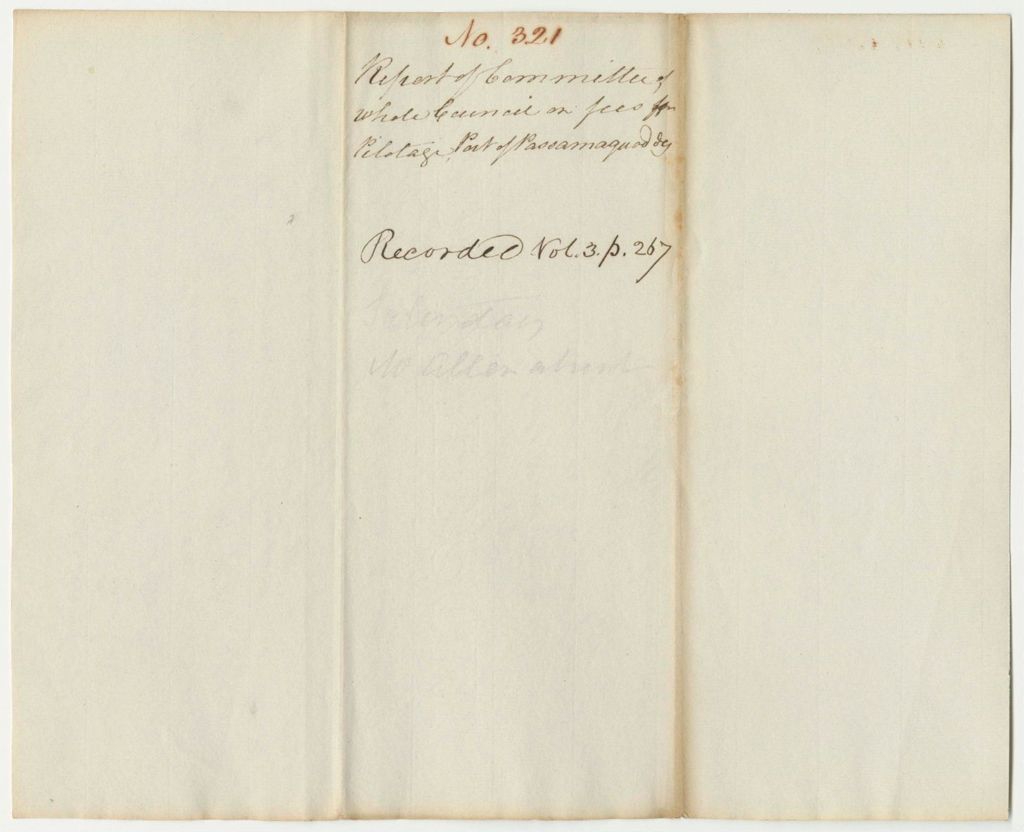 No. 321
Report of Committee of
whole Council on fees for
Pilotage Port of Passamaquoddy
Recorded Vol. 3. p. 267
Mr Allen absent